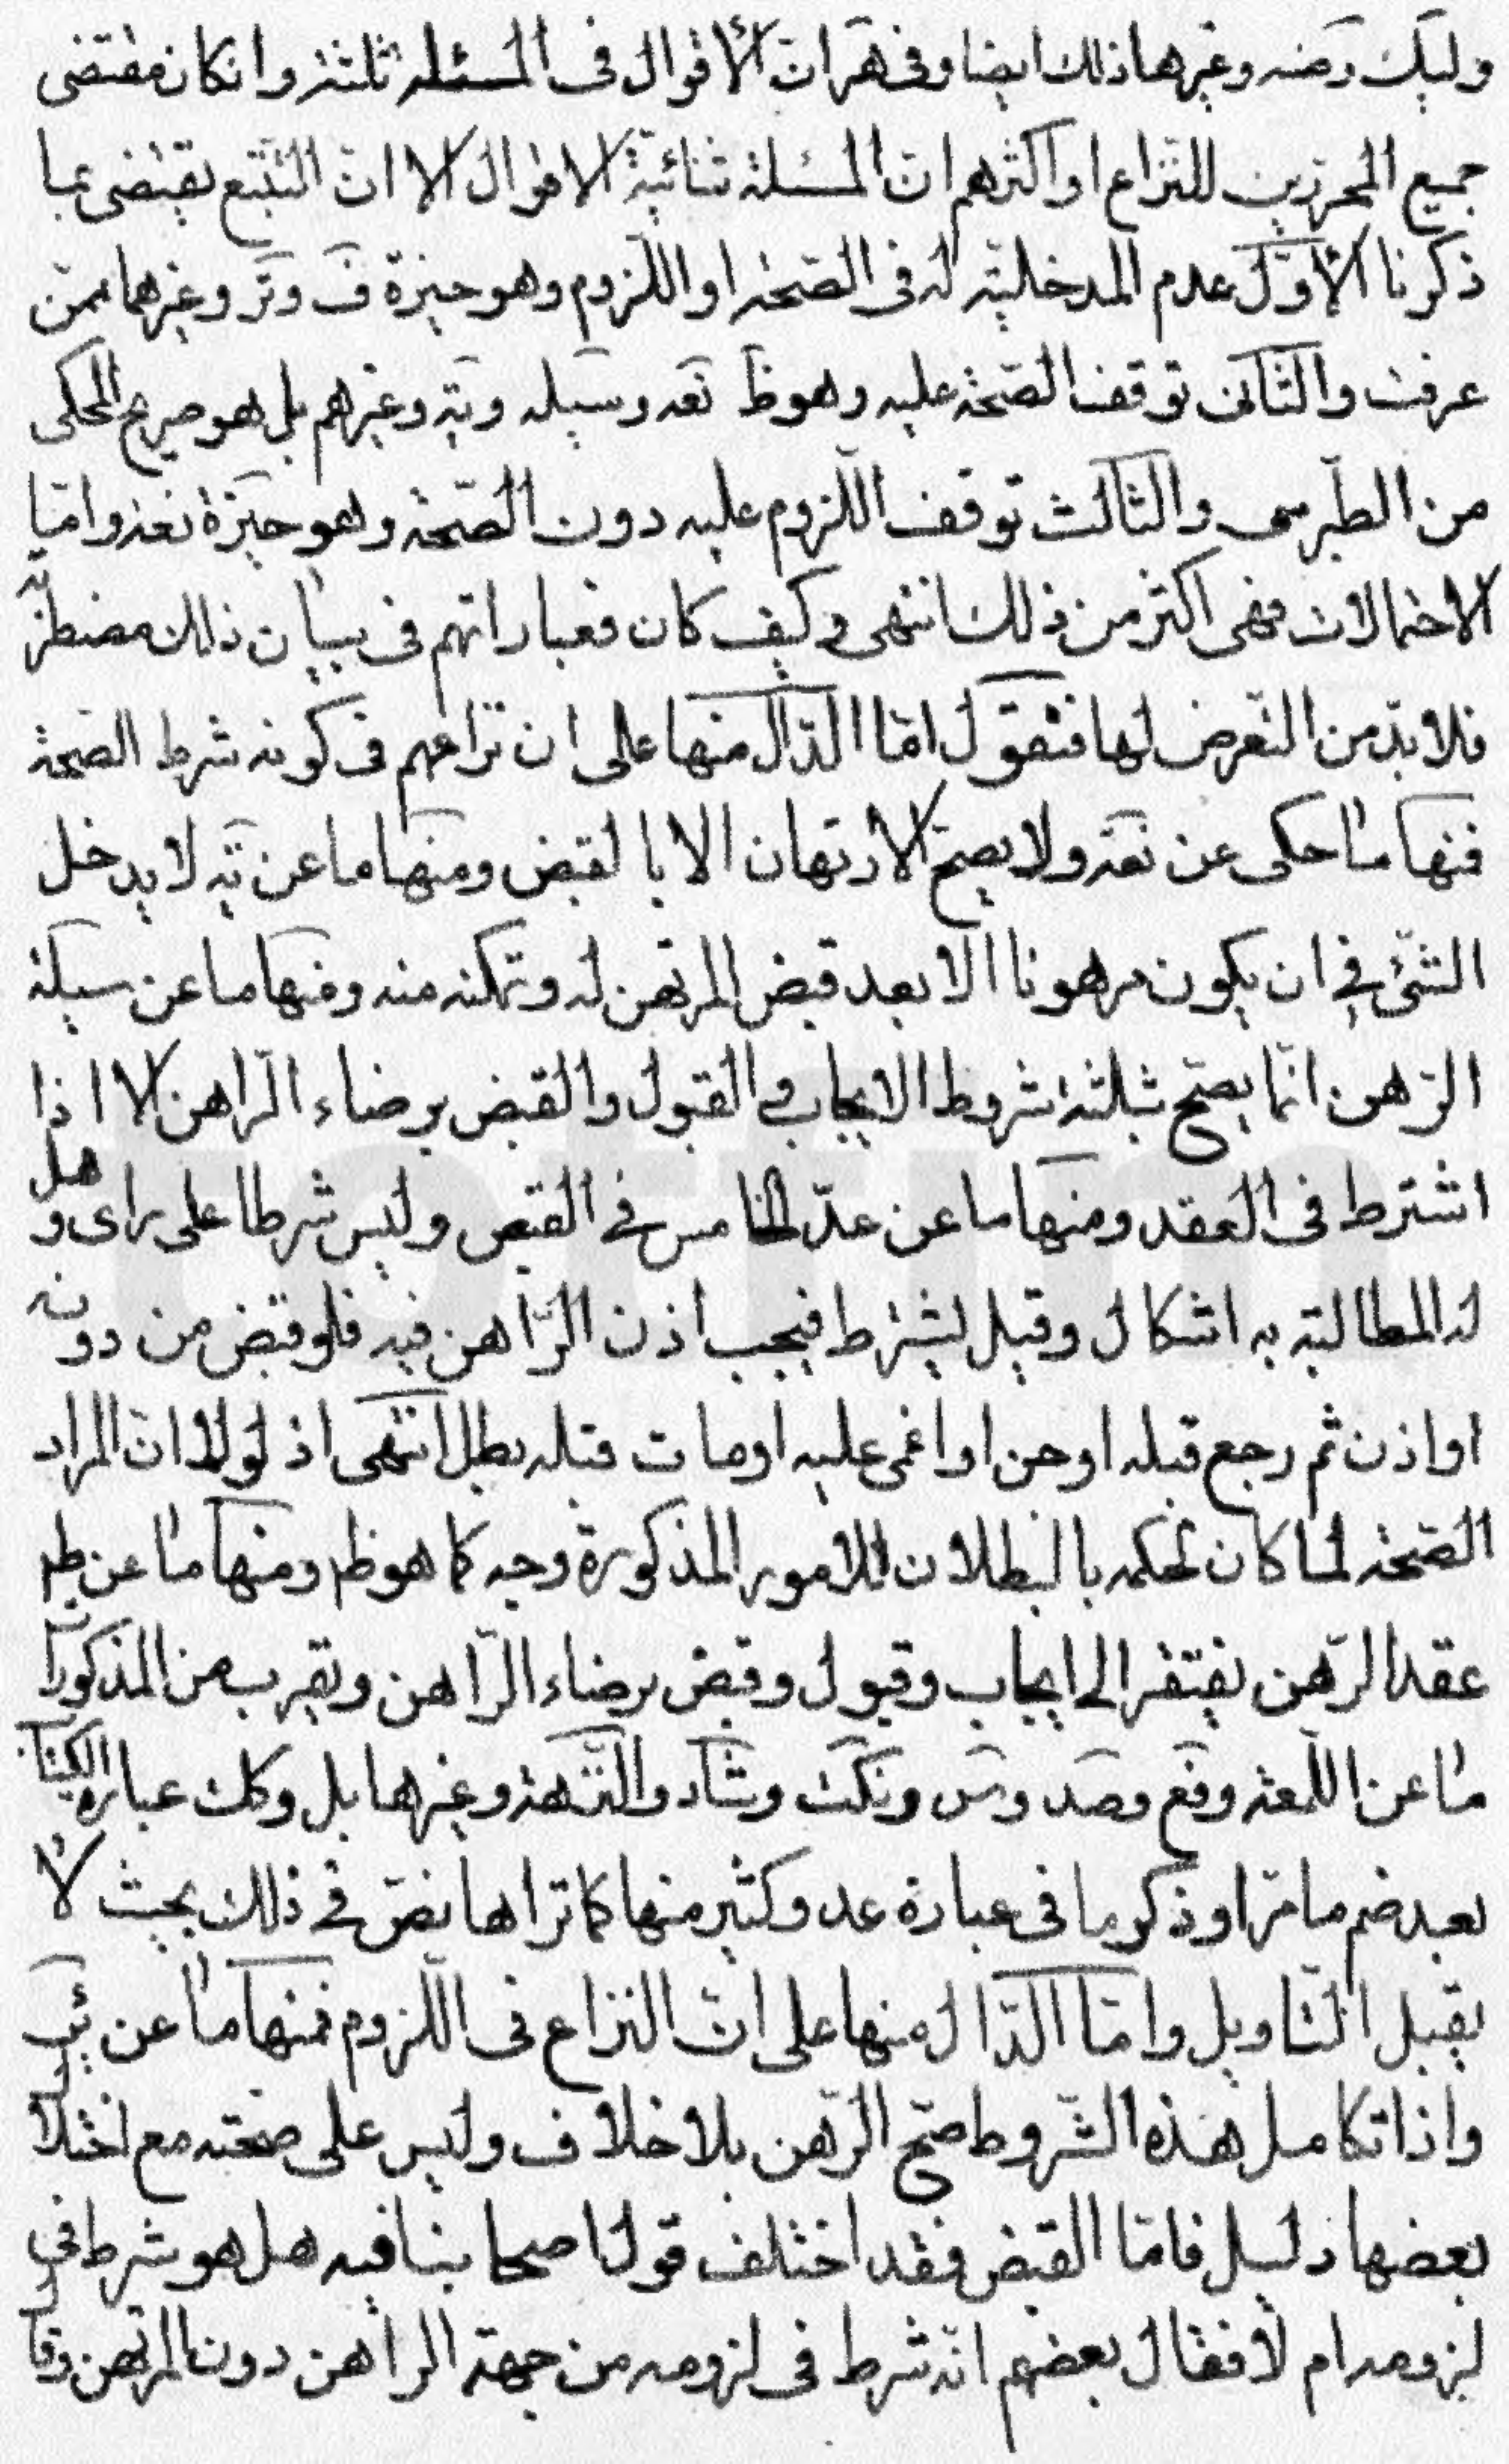 وليك وضه وغيرها ذلك ايضا وفى هران الأقوال فى المسئله ثلثة وانكان مقتضى
جميع المحرزين للنزاع او اكثرهم ان المسئلة ثنائية الاقوال الا ان التتبع يقتضى بما
ذكرنا الأوّل عدم المدخلية له فى الصّحة او اللّزوم وهو خيرة ف وتر وغيرهما ممّن
عرفت والثّانى توقف الصّحة عليه وهو ظ نعه وسيله ويه وغيرهم بل هو صريح المحكى
من الطّبرسى والثالث توقف اللّزوم عليه دون الصّحة وهو خيرة نعه وامّا
الاحتمالات فهى اكثر من ذلك انتهى وكيف كان فعباراتهم فى بيان ذلك مضطربة
فلا بدّ من التّعرض لها فنقول امّا الدّال منها على ان نزاعهم فى كونه شرط الصّحة
فمنها ما حكى عن نعه ولا يصحّ الارتهان الا بالقبض ومنها ما عن يه لا يدخل
الشّئ فى ان يكون مرهونا الا بعد قبض المرتهن له وتمكنه منه ومنها ما عن سيلة
الرّهن انّما يصحّ بثلثة شروط الايجاب والقبول والقبض برضاء الرّاهن الا اذا
اشترط فى العقد ومنها ما عن عدّ الخامس فى القبض وليس شرطا على راى وهل
له المطالبة به اشكال وقيل يشترط فيجب اذن الرّاهن فيه فلو قبض من دونه
او اذن ثم رجع قبله او جن او اغمى عليه او مات قبله بطل انتهى اذ لولا ان المراد
الصّحة لما كان لحكمه بالبطلان للامور المذكورة وجه كما هو ظ ومنها ما عن ط
عقد الرّهن يفتقر الى ايجاب وقبول وقبض برضاء الرّاهن ويقرب من المذكورا
ما عن اللّمعة وفع وصد وس ونكت وشاد والنزهة وغيرها بل وكك عبارة الكتاب
بعد ضم ما مرّ او ذكر ما فى عبارة عد وكثير منها كما تراها نصّ فى ذلك بحيث لا
يقبل التّاويل وامّا الدّال منها على انّ النزاع فى اللّزوم فمنها ما عن ئر
واذا تكامل هذه الشّروط صحّ الرّهن بلا خلاف وليس على صحّته مع اختلا
بعضها دليل فامّا القبض فقد اختلف قول اصحابنا فيه هل هو شرط فى
لزومه ام لا فقال بعضهم انّه شرط فى لزومه من جهة الراهن دون المرتهن وقا